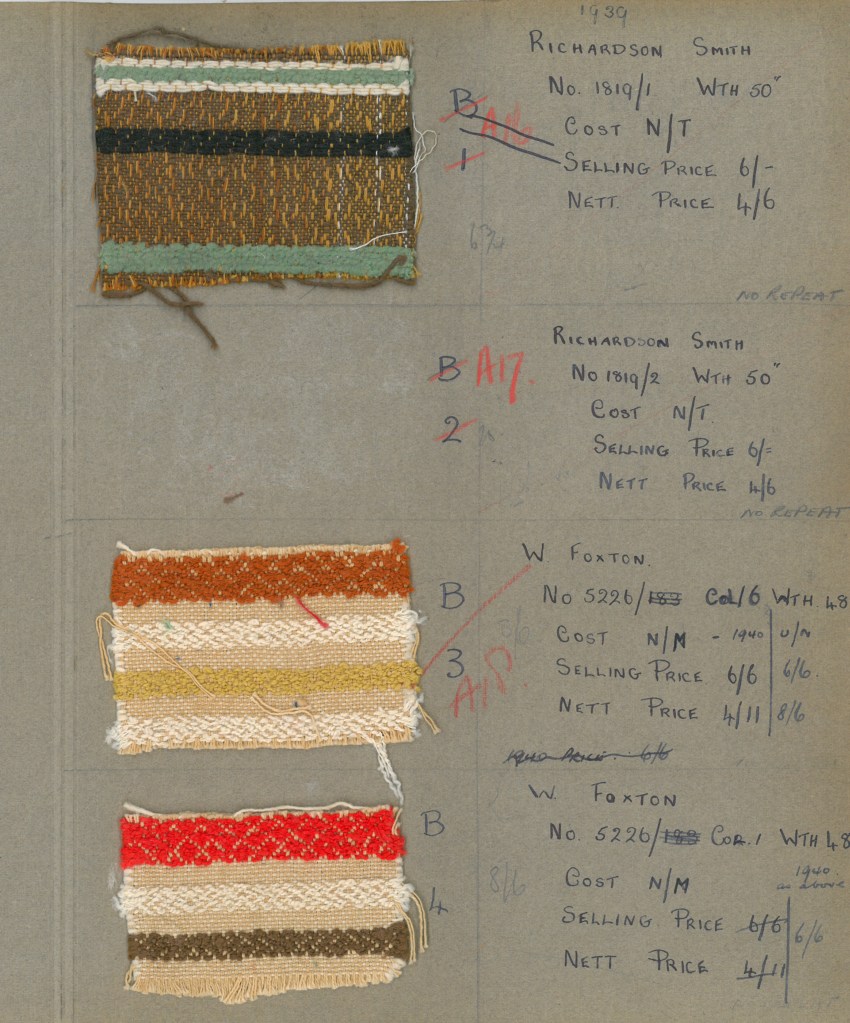 1939
RICHARDSON SMITH
B No. 1819/1 WTH 50"
A16 COST N/T
1 SELLING PRICE 6/-
NETT. PRICE 4/6
NO REPEAT
RICHARDSON SMITH
B A17. No 1819/2 WTH 50"
COST N/T.
2 SELLING PRICE 6/=
NETT PRICE 4/6
NO REPEAT
W. FOXTON.
B No 5226/183 COL/6 WTH. 48
COST N/M - 1940 U/M
3 SELLING PRICE 6/6 6/6.
A18. NETT PRICE 4/11 8/6
1940 PRICE. 6/6
W. FOXTON
B No. 5226/183 COL. 1 WTH 48
1940.
8/6 COST N/M as above
4 SELLING PRICE 6/6 6/6
NETT PRICE 4/11